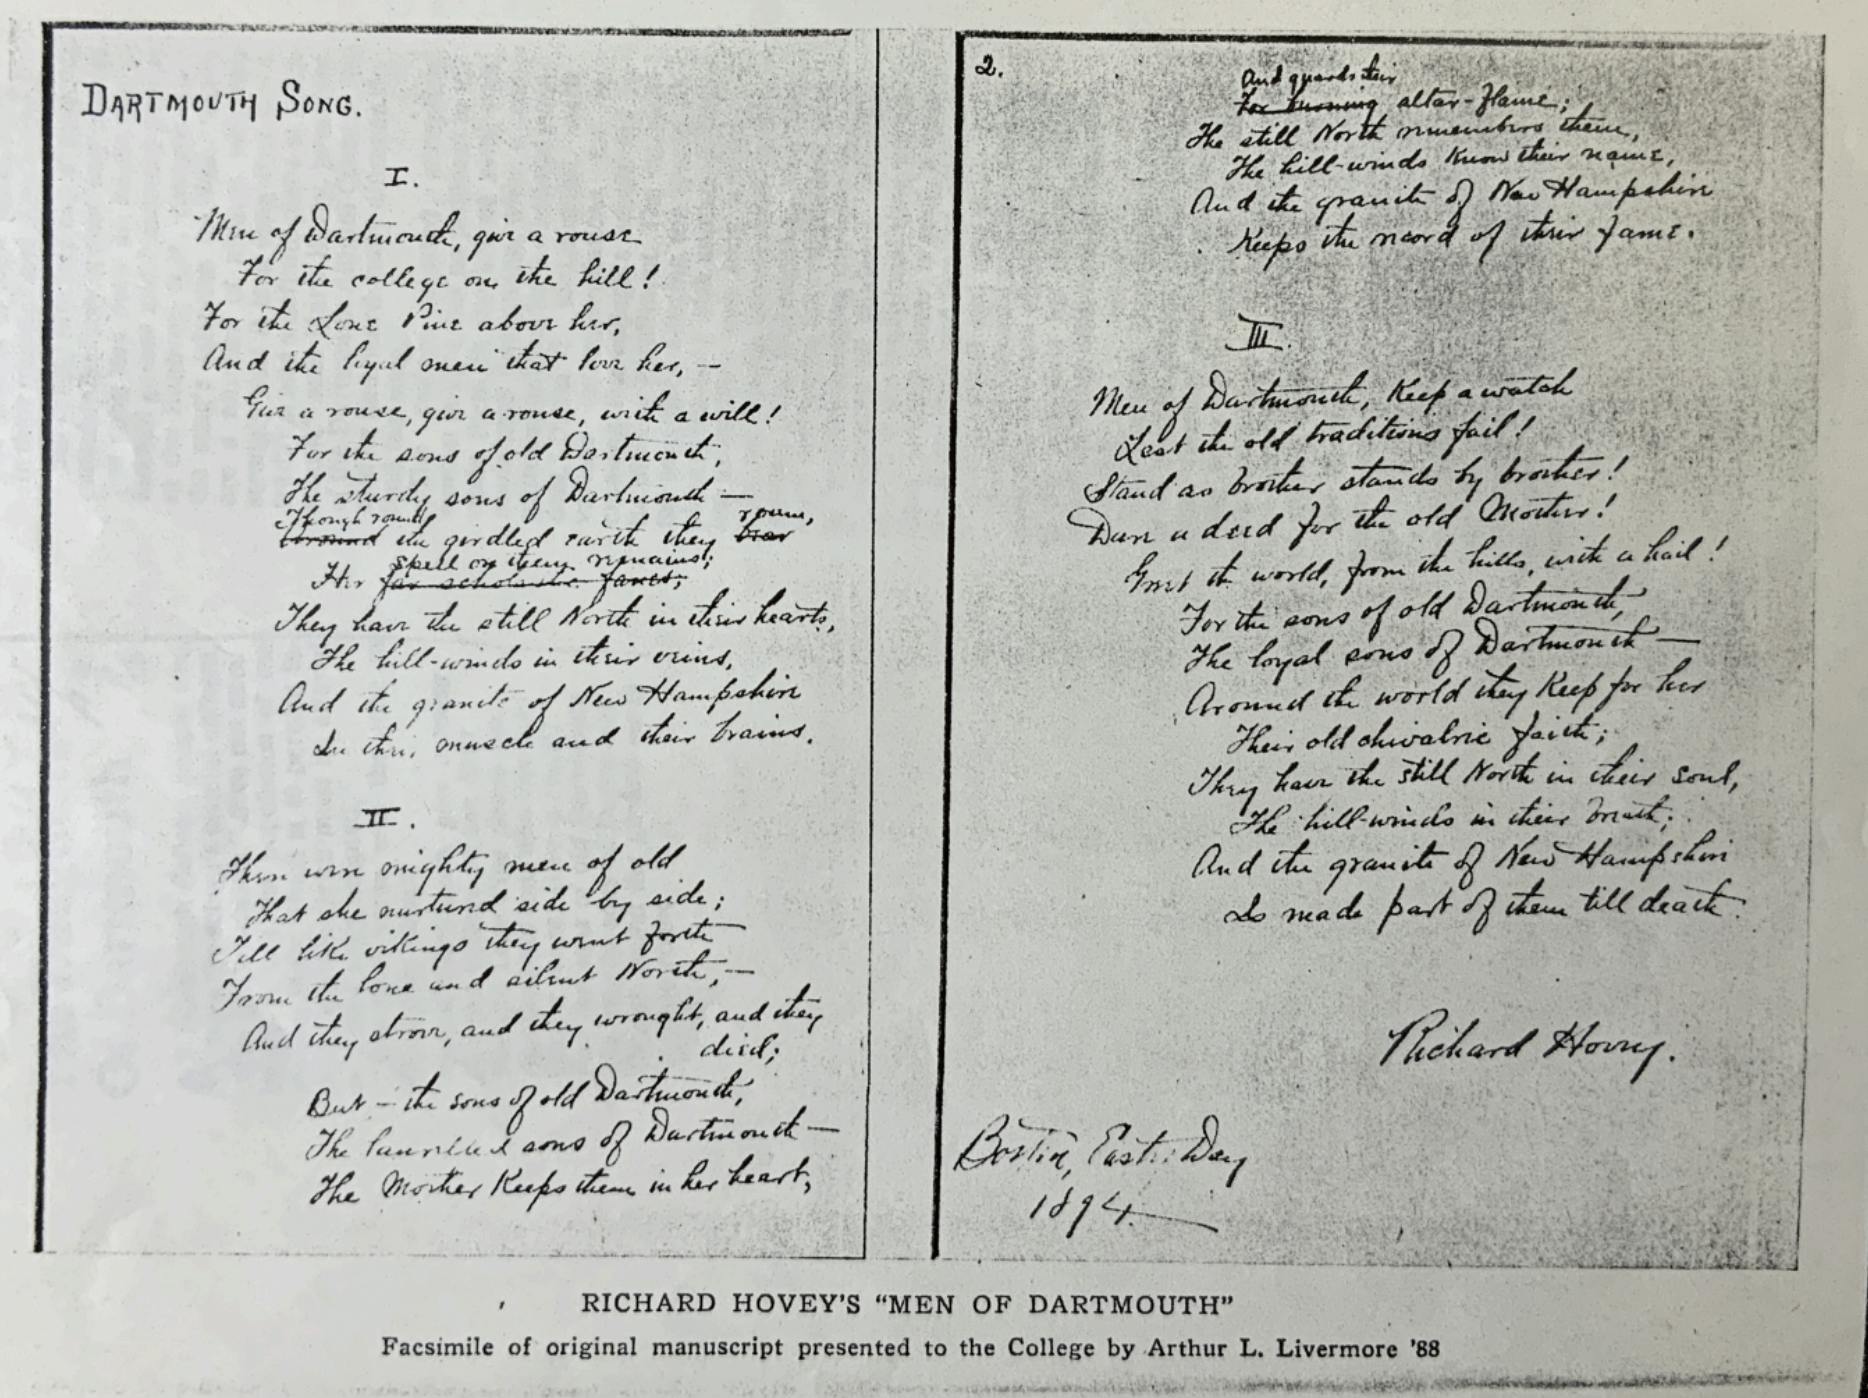 DARTMOUTH SONG.
I.
Men of Dartmouth, give a rouse
For the college on the hill!
For the Lone Pine above her,
And the loyal men that love her, —
Give a rouse, give a rouse, with a will!
For the sons of old Dartmouth,
The sturdy sons of Dartmouth —
Though round roam,
Around the girdled earth they bear
spell on them remains;
Her far scholastic fanes;
They have the still North in their hearts,
The hill-winds in their veins,
And the granite of New Hampshire
In their muscle and their brains.
II.
There were mighty men of old
That she nurtured side by side;
Till like vikings they went forth
From the lone and silent North, —
And they strove, and they wrought, and they
died;
But — the sons of old Dartmouth,
The laurelled sons of Dartmouth —
The Mother keeps them in her heart,
2.
And guards their
For burning altar-flame;
The still North remembers them,
The hill-winds know their name,
And the granite of New Hampshire
Keeps the record of their fame.
III.
Men of Dartmouth, keep a watch
Lest the old traditions fail!
Stand as brother stands by brother!
Dare a deed for the old Mother!
Greet the world, from the hills, with a hail!
For the sons of old Dartmouth,
The loyal sons of Dartmouth —
Around the world they keep for her
Their old chivalric faith;
They have the still North in their soul,
The hill-winds in their breath;
And the granite of New Hampshire
Is made part of them till death.
Richard Hovey.
Boston, Easter Day
1894.
RICHARD HOVEY'S “MEN OF DARTMOUTH”
Facsimile of original manuscript presented to the College by Arthur L. Livermore '88